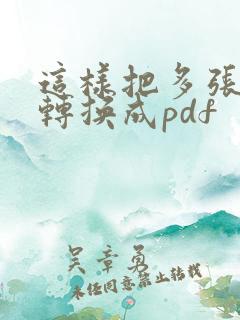 這樣把多張
轉換成pdf
吴章勇
未经同意禁止转载